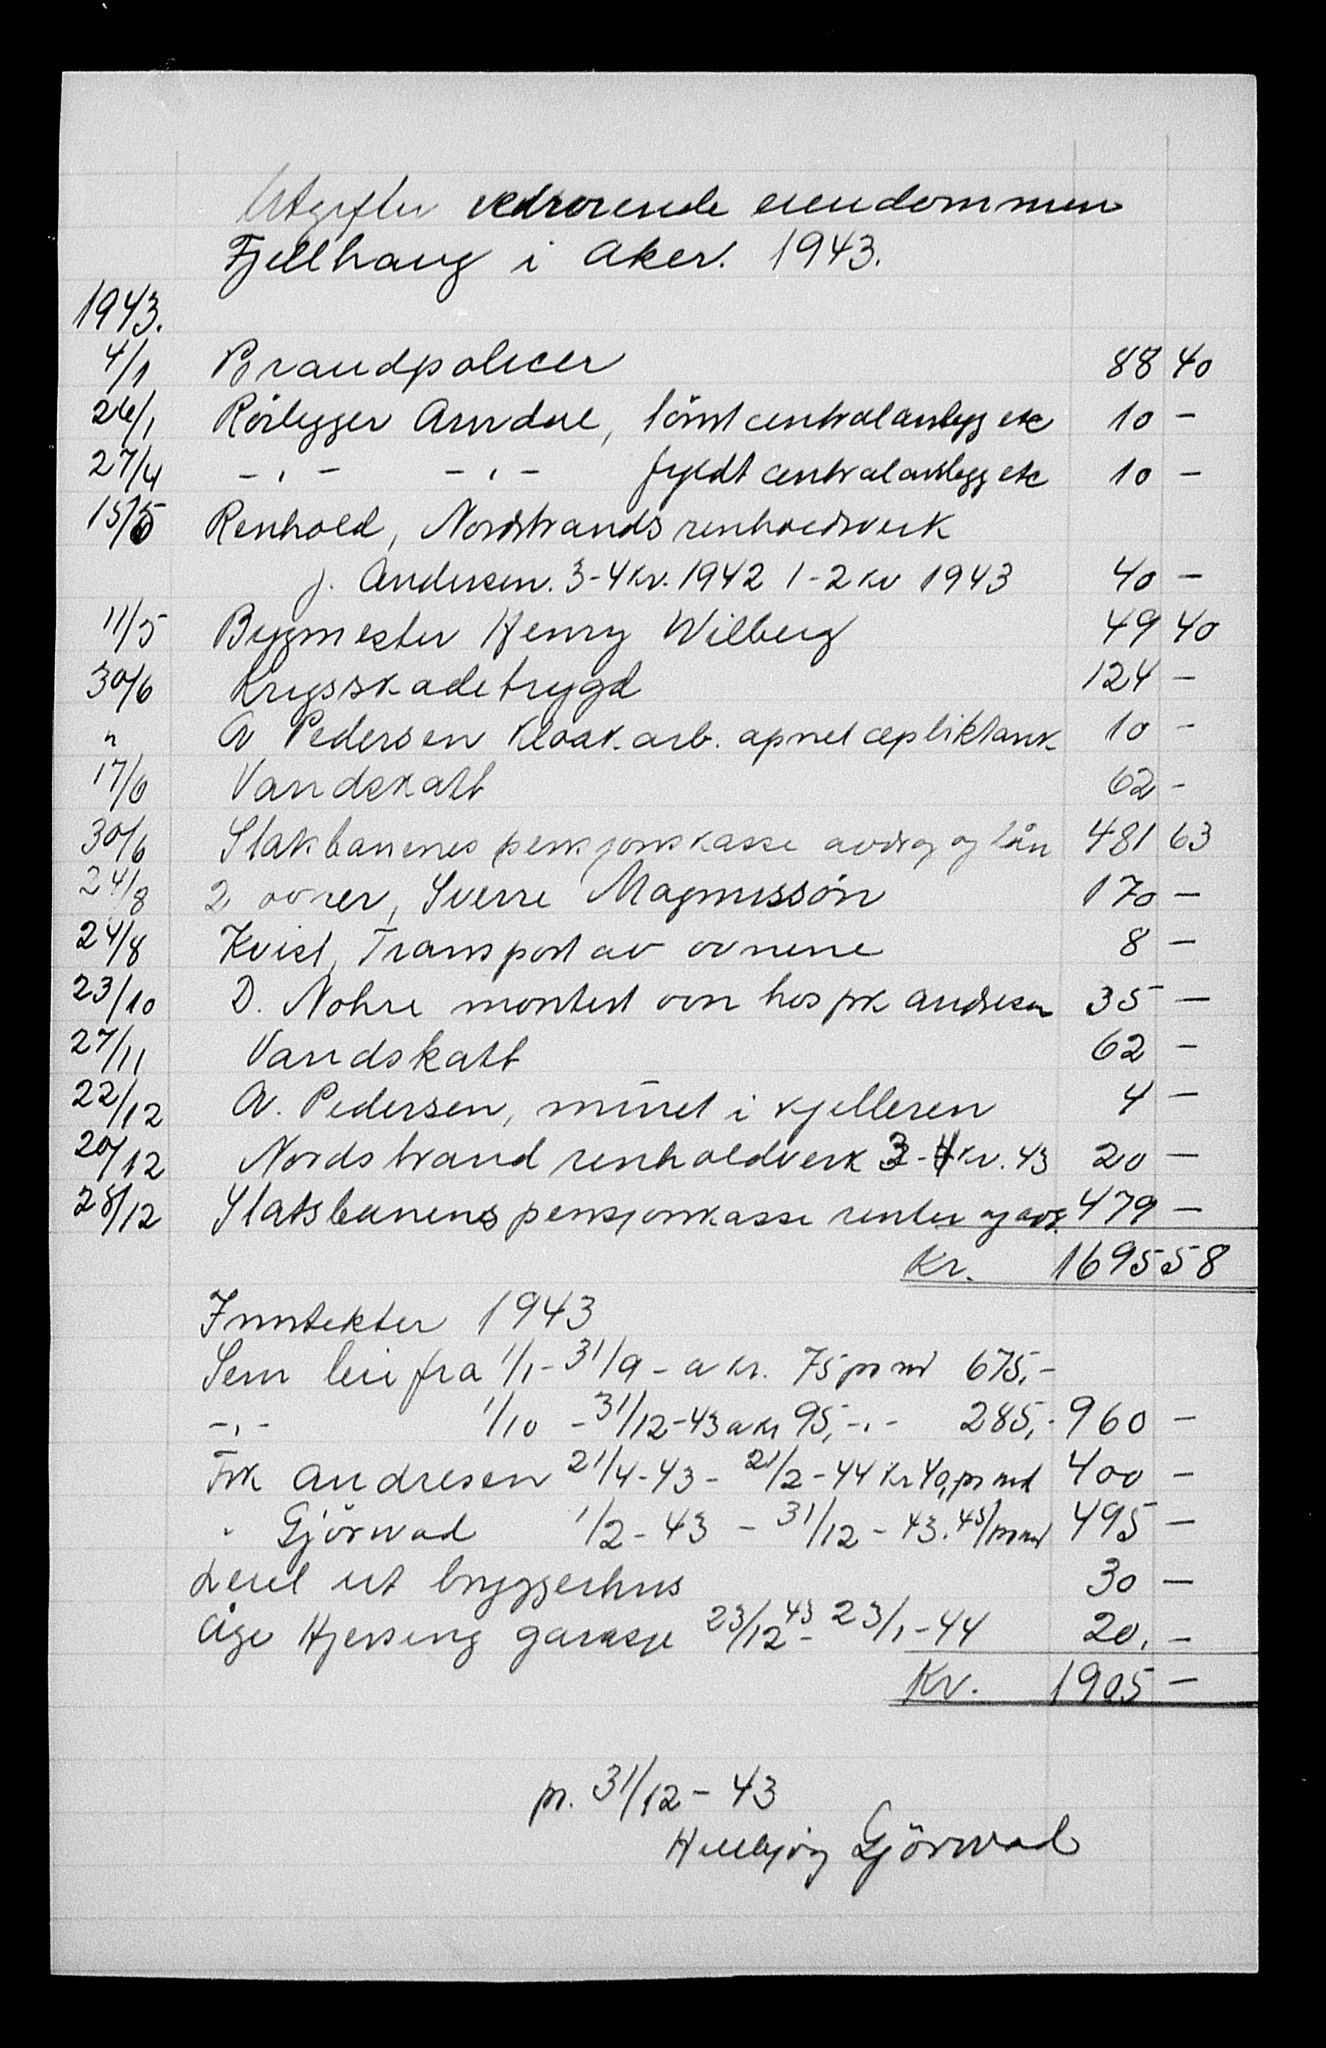 Utgifter vedrørende eiendommen
Fjellhaug i Aker. 1943.
1943.
4/1 Brandpolicer 88 40
26/1 Rörlegger Arndal, tömt centralanlegg etc 10 -
27/4 -,- -,- fyldt centralanlegg etc 10 -
15/5 Renhold, Nordstrands renholdsverk
J. Andersen. 3-4 kv. 1942 1-2 kv 1943 40 -
11/5 Bygmester Henry Wilberg 49 40
30/6 Krigsskadetrygd 124 -
" A Pedersen kloak.arb. apnet cepliktank 10 -
17/6 Vandskatt 62 -
30/6 Statsbanenes pensjonskasse avdrag og lån 481 63
24/8 2 ovner, Sverre Magnussön 170 -
24/8 Kvist, Transport av ovnene 8 -
23/10 D. Nohre montert ovn hos frk Andresen 35 -
27/11 Vandskatt 62 -
22/12 A. Pedersen, muret i kjelleren 4 -
20/12 Nordstrand renholdverk 3-4 kv. 43 20 -
28/12 Statsbanenes pensjonskasse renter og avd. 479 -
Kr. 1695 58
Inntekter 1943
Sem leie fra 1/1 - 31/9 - a kr. 75 pr md 675,-
-,- 1/10 - 31/12-43 a kr 95,-,- 285,- 960 -
Frk Andresen 21/4-43 - 21/2-44 kr 40, pr md 400 -
" Gjörwad 1/2-43 - 31/12-43. 45/pr md 495 -
Leiet ut bryggerhus 30 -
Åge Hjersing garasje 23/12 43 - 23/1-44 20,-
Kr. 1905 -
pr. 31/12-43
Gjörwad